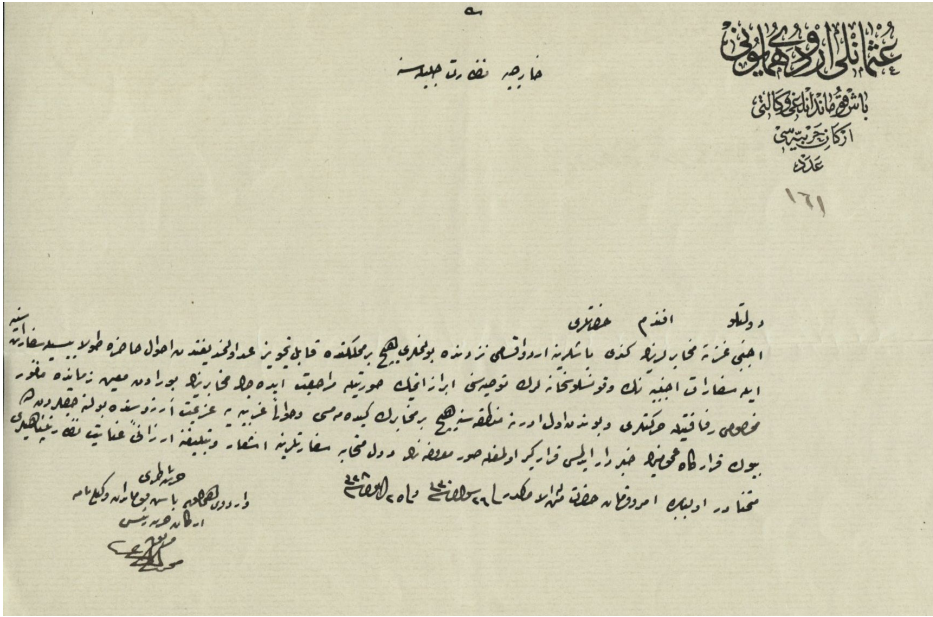 عثمانلی اردوی همایونی
باش قوماندانلغی وكالتی
اركان حربیه سی
عدد
١٦١
خارجیه نظارت جلیله سنه
دولتلو افندم حضرتلری
اجنبی غزته مخابرلرینك كندی باشلرینه اردو اقسامی نزدنده بولنملری هیچ بر مملكتده قابل تجویز عد اولنمدیغندن احوال حاضره طولاییسیله سفارات سنیه
ایله سفارات اجنبیه نك و قونسلوسخانه لرك توصیه سنی ابراز ایتمك صورتیله مراجعت ایده جك مخابرلرك بورادن معین زمانده مأمور
مخصوص رفاقتیله حركتلری و بوندن اول ادرنه منطقه سنه هیچ بر مخابرك كیده مه مسی و طوغریجه غربیه یه عزیمت آرزوسنده بولنه جقلردن
بیوك قرارگاه عمومینك خبردار ایدلمسی قرارگیر اولمغله دول متحابه سفارتلرینه اشعار و تبلیغنه عنایت
متمنادر اولبابده امر و فرمان حضرت من له الامركدر
باش قوماندان وكیلی نامنه
اركان حربیه رئیسی